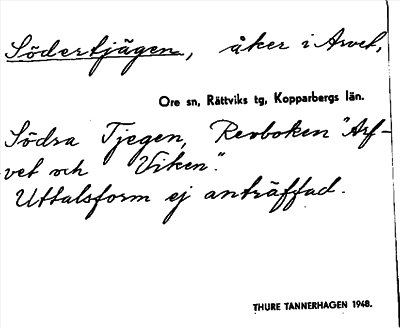 Södertjägen, åker i Arvet,
Ore sn, Rättviks tg, Kopparbergs län.
Södra Tjegen, Revboken "Arf-
vet och Viken".
Uttalsform ej anträffad.
THURE TANNERHAGEN 1948.